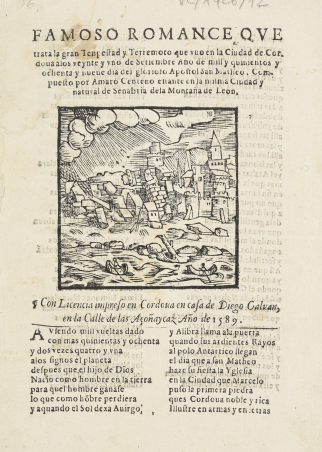 FAMOSO ROMANCE QVE
trata la gran Tempestad y Terremoto que vuo en la Ciudad de Cor
doua a los veynte y vno de Setiembre Año de mil y quinientos y
ochenta y nueue dia del glorioso Apostol san Matheo. Com
puesto por Amaro Centeno estante en la misma Ciudad y
natural de Senabria de la Montaña de Leon.
¶ Con Licencia impreso en Cordoua en casa de Diego Galuan,
en la Calle de las Açonaycaz Año de 1589.
AViendo mill vueltas dado
con mas quinientas y ochenta
y dos vezes quatro y vna
a los signos el planeta
despues que el hijo de Dios
Nacio como hombre en la tierra
para quel hombre ganase
lo que como hõbre perdiera
y aquando el Sol dexa
y A libra llama a la puerta
quando sus ardientes Rayos
al polo Antartico llegan
el dia que a san Matheo
haze su fiesta la Yglesia
en la Ciudad que Marcelo
puso la primera piedra
ques Cordoua noble y rica
Illustre en armas y en letras